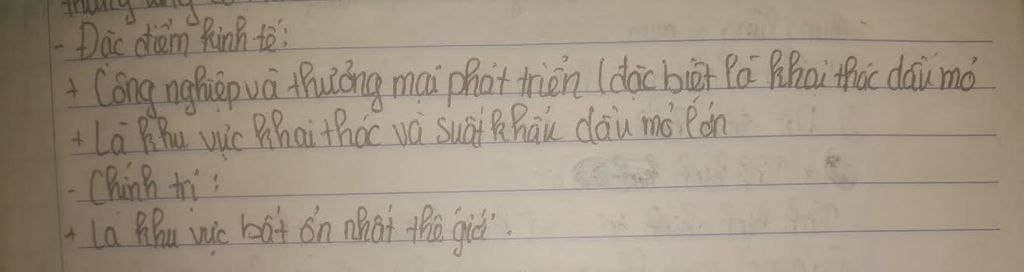 - Đặc điểm kinh tế:
+ Công nghiệp và thương mại phát triển (đặc biệt là khai thác dầu mỏ
+ Là khu vực khai thác và suất khẩu dầu mỏ lớn
- Chính trị:
+ Là khu vực bất ổn nhất thế giới.